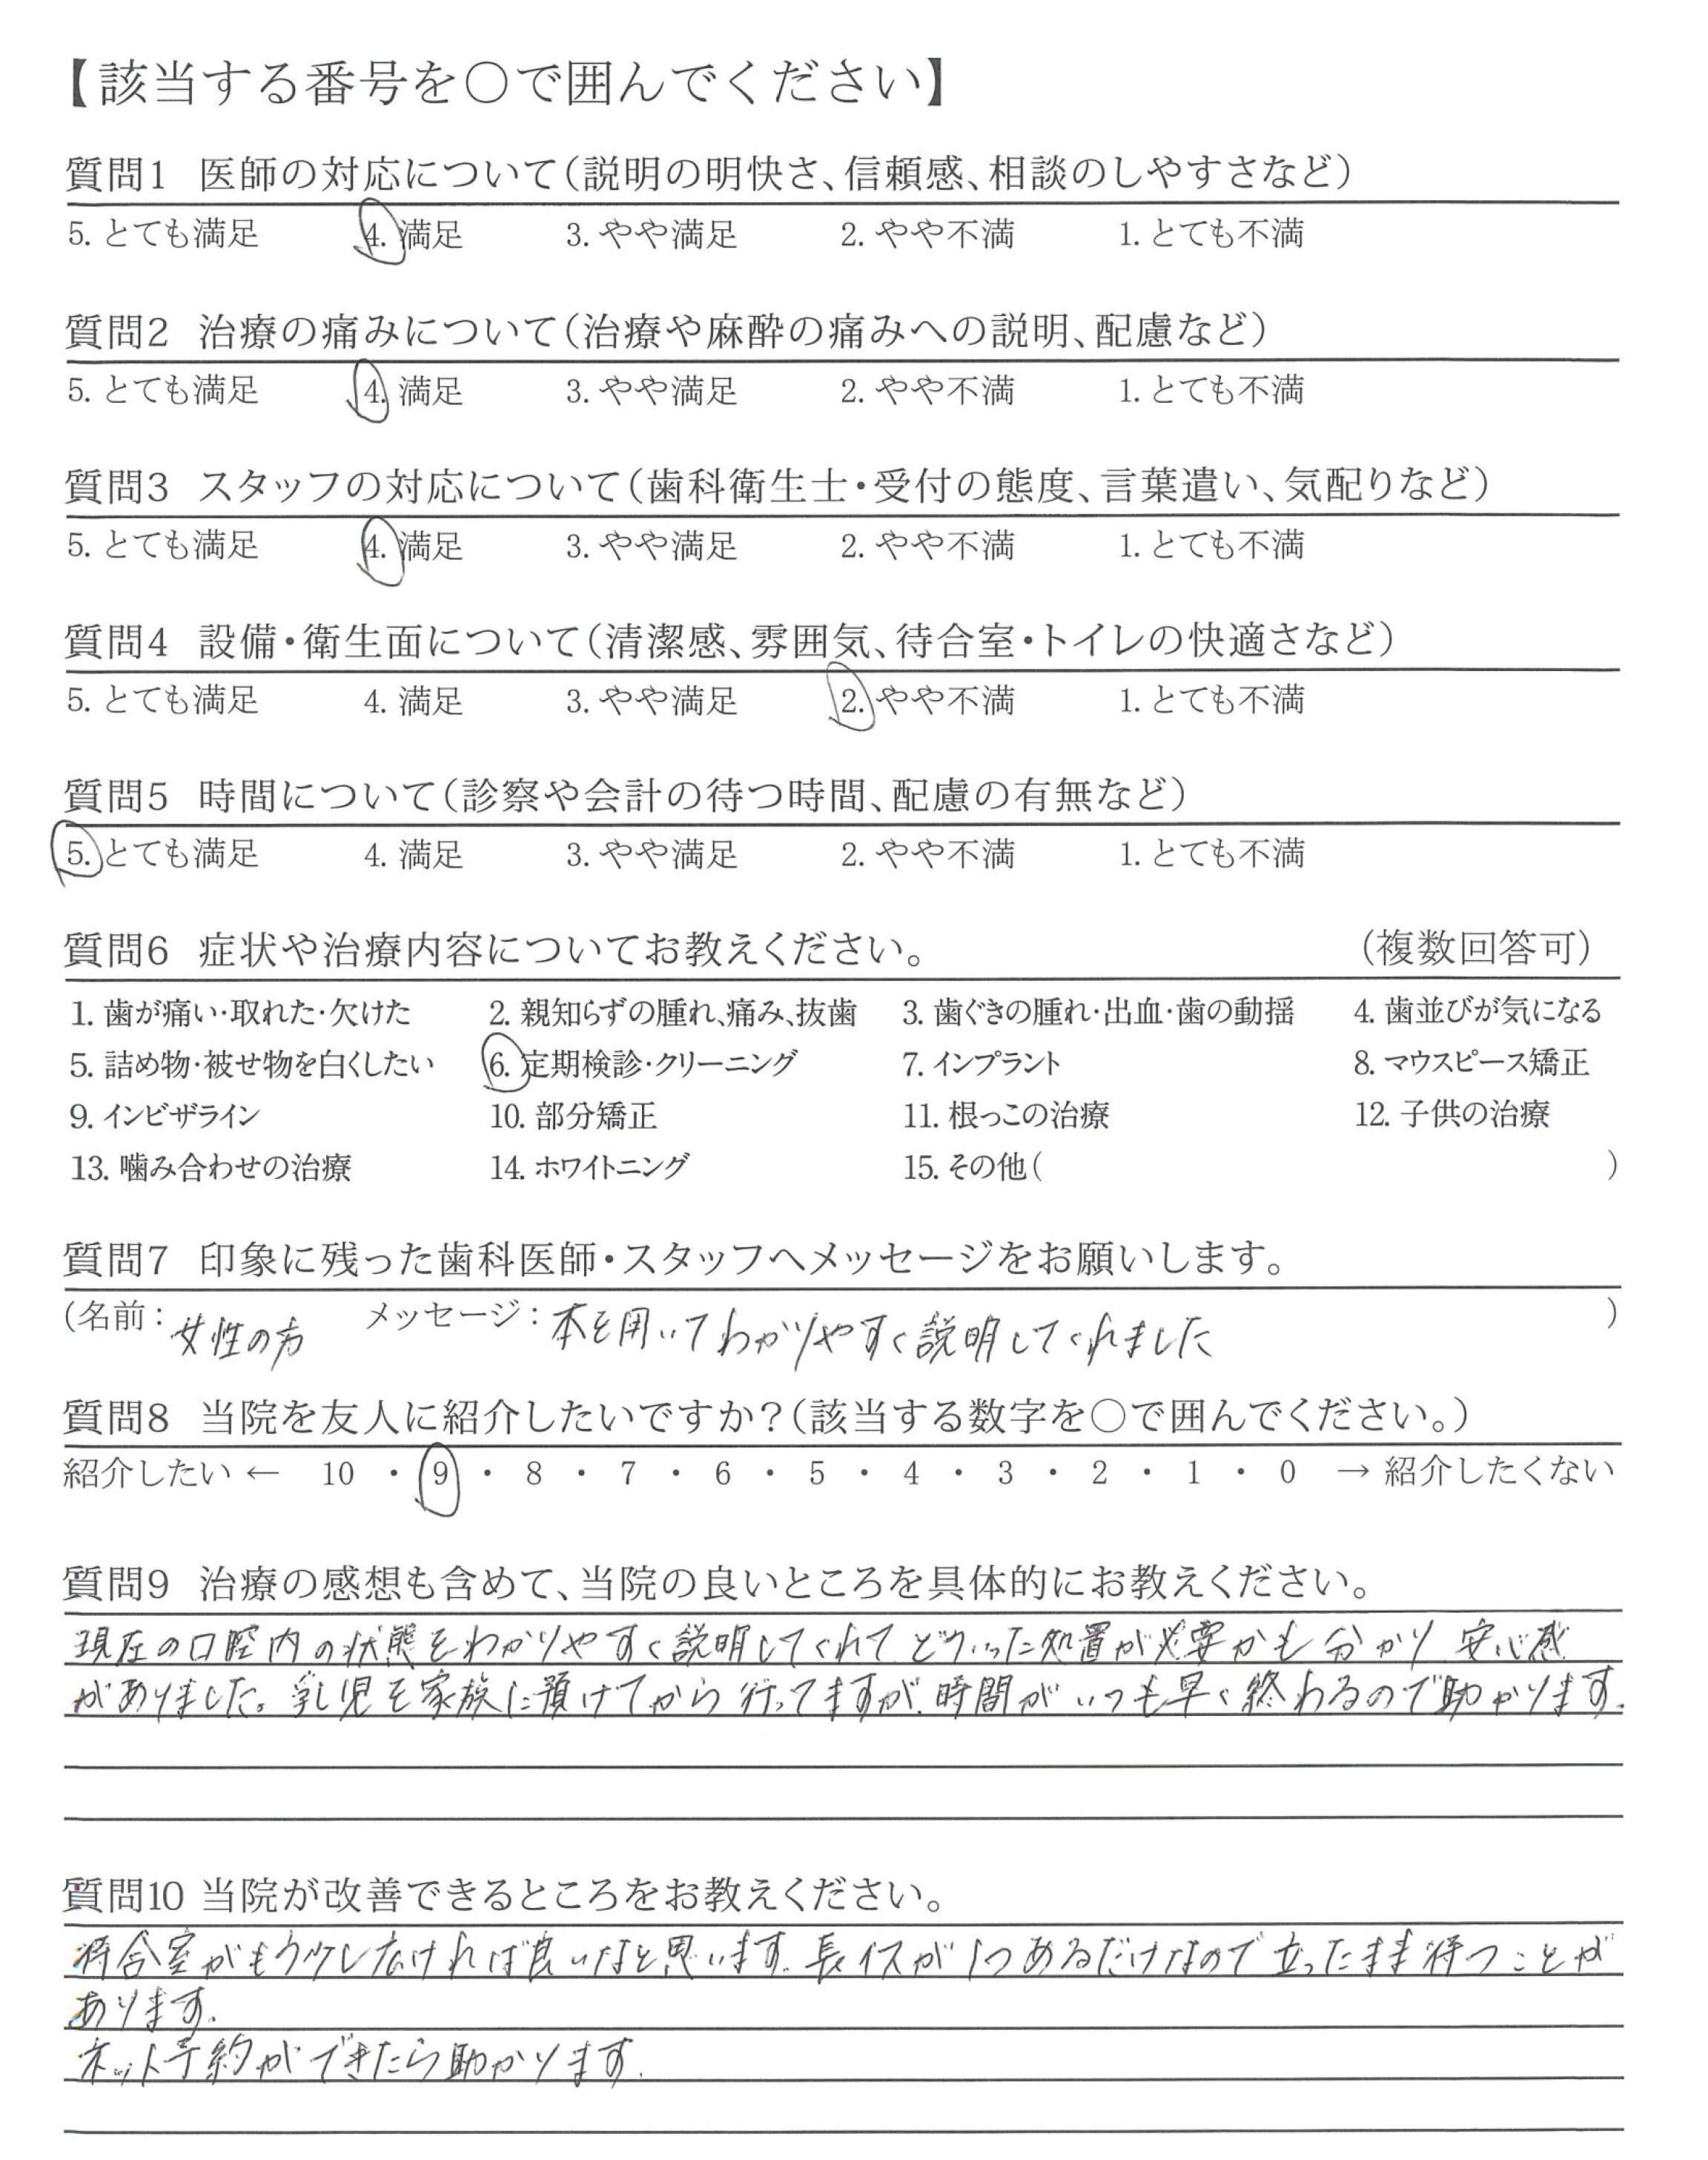 【該当する番号を○で囲んでください】
質問1 医師の対応について（説明の明快さ、信頼感、相談のしやすさなど）
5. とても満足 4. 満足 3. やや満足 2. やや不満 1. とても不満
質問2 治療の痛みについて（治療や麻酔の痛みへの説明、配慮など）
5. とても満足 4. 満足 3. やや満足 2. やや不満 1. とても不満
質問3 スタッフの対応について（歯科衛生士・受付の態度、言葉遣い、気配りなど）
5. とても満足 4. 満足 3. やや満足 2. やや不満 1. とても不満
質問4 設備・衛生面について（清潔感、雰囲気、待合室・トイレの快適さなど）
5. とても満足 4. 満足 3. やや満足 2. やや不満 1. とても不満
質問5 時間について（診察や会計の待つ時間、配慮の有無など）
5. とても満足 4. 満足 3. やや満足 2. やや不満 1. とても不満
質問6 症状や治療内容についてお教えください。 （複数回答可）
1. 歯が痛い・取れた・欠けた 2. 親知らずの腫れ、痛み、抜歯 3. 歯ぐきの腫れ・出血・歯の動揺 4. 歯並びが気になる
5. 詰め物・被せ物を白くしたい 6. 定期検診・クリーニング 7. インプラント 8. マウスピース矯正
9. インビザライン 10. 部分矯正 11. 根っこの治療 12. 子供の治療
13. 噛み合わせの治療 14. ホワイトニング 15. その他（ ）
質問7 印象に残った歯科医師・スタッフへメッセージをお願いします。
（名前：女性の方 メッセージ：本を用いてわかりやすく説明してくれました ）
質問8 当院を友人に紹介したいですか？（該当する数字を○で囲んでください。）
紹介したい ← 10 ・ 9 ・ 8 ・ 7 ・ 6 ・ 5 ・ 4 ・ 3 ・ 2 ・ 1 ・ 0 → 紹介したくない
質問9 治療の感想も含めて、当院の良いところを具体的にお教えください。
現在の口腔内の状態をわかりやすく説明してくれてどういった処置が必要かも分かり 安心感
がありました。乳児を家族に預けてから行ってますが、時間がいつも早く終わるので助かります.
質問10 当院が改善できるところをお教えください。
待合室がもう少し広ければ良いなと思います. 長イスが1つあるだけなので立ったまま待つことが
あります.
ネット予約ができたら助かります.